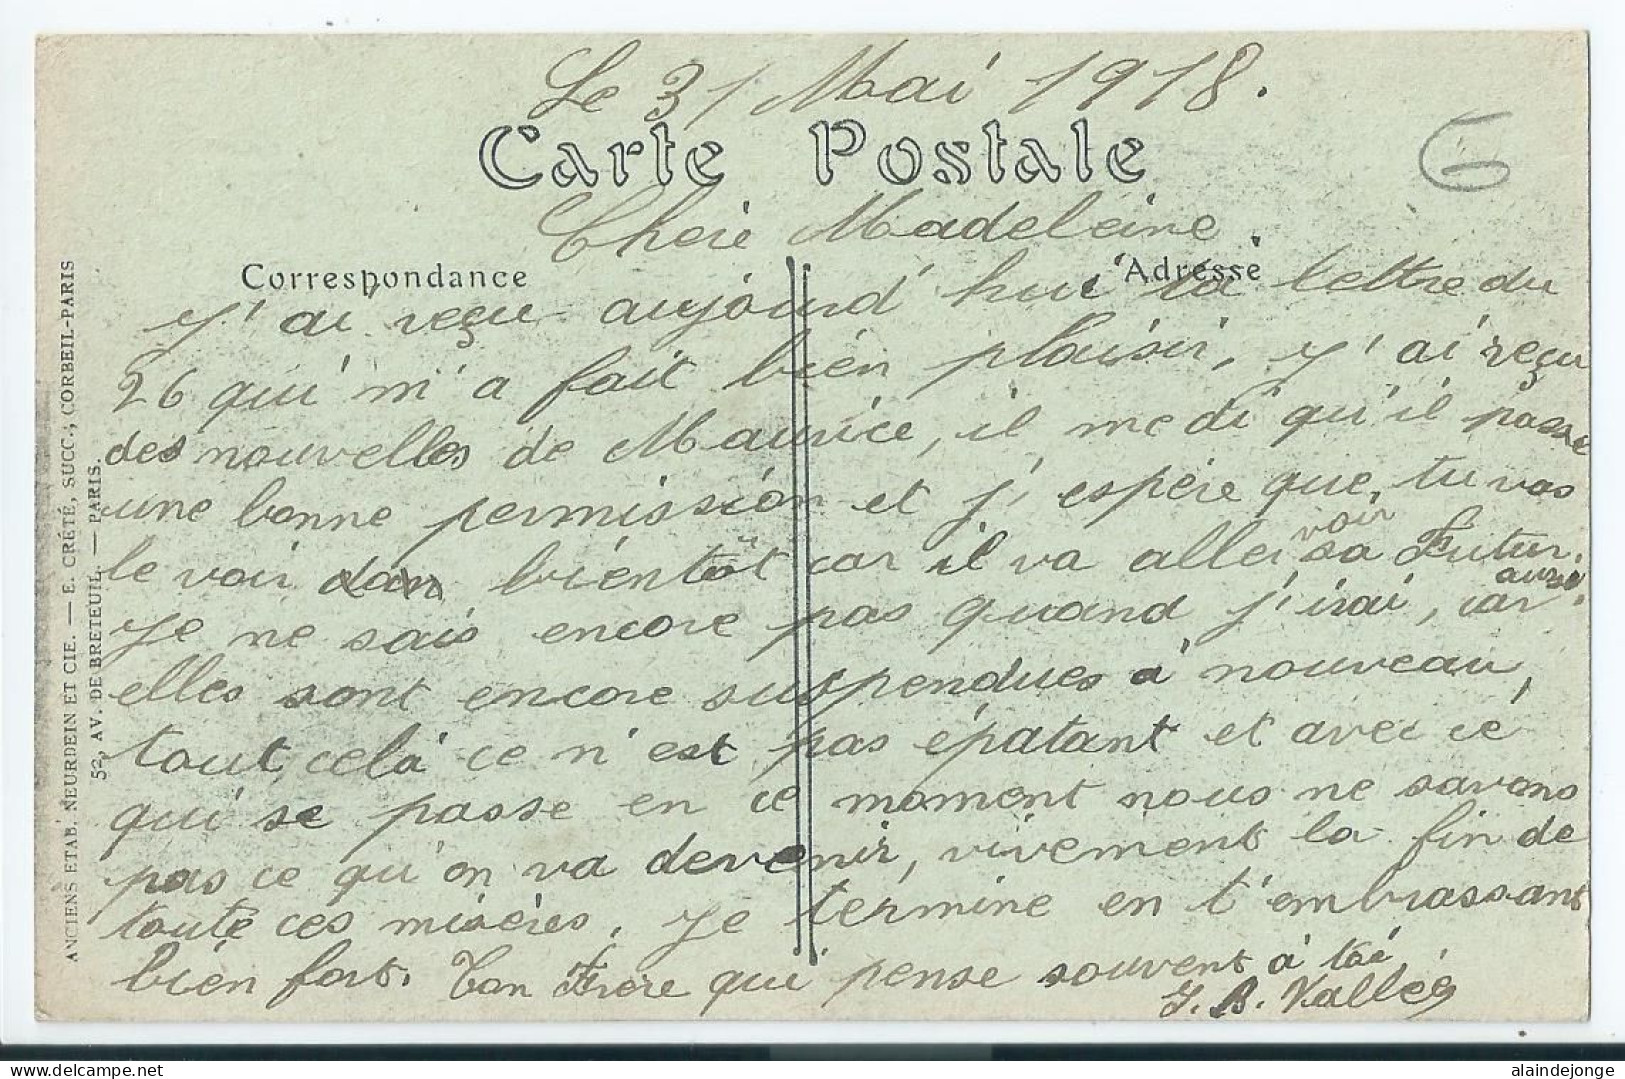 Le 31 Mai 1918.
Carte Postale
Chère Madeleine.
Correspondance
Adresse
J'ai reçu aujourd'hui ta lettre du
26 qui m'a fait bien plaisir, J'ai reçu
des nouvelles de Maurice, il me di qu'il passe
une bonne permission et j'espère que tu vas
le voir dan bientôt car il va aller voir sa Futur.
Je ne sais encore pas quand j'irai, car aussi
elles sont encore suspendues à nouveau,
tout celà ce n'est pas épatant et avec ce
qui se passe en ce moment nous ne savons
pas ce qu'on va devenir, vivement la fin de
toute ces misères. Je termine en t'embrassant
bien fort. Ton Frère qui pense souvent à toi
J. B. Vallée
ANCIENS ETAB. NEURDEIN ET CIE. — E. CRÉTÉ, SUCC., CORBEIL-PARIS
52, AV. DE BRETEUIL. — PARIS.
6
delcampe.net
alaindejonge